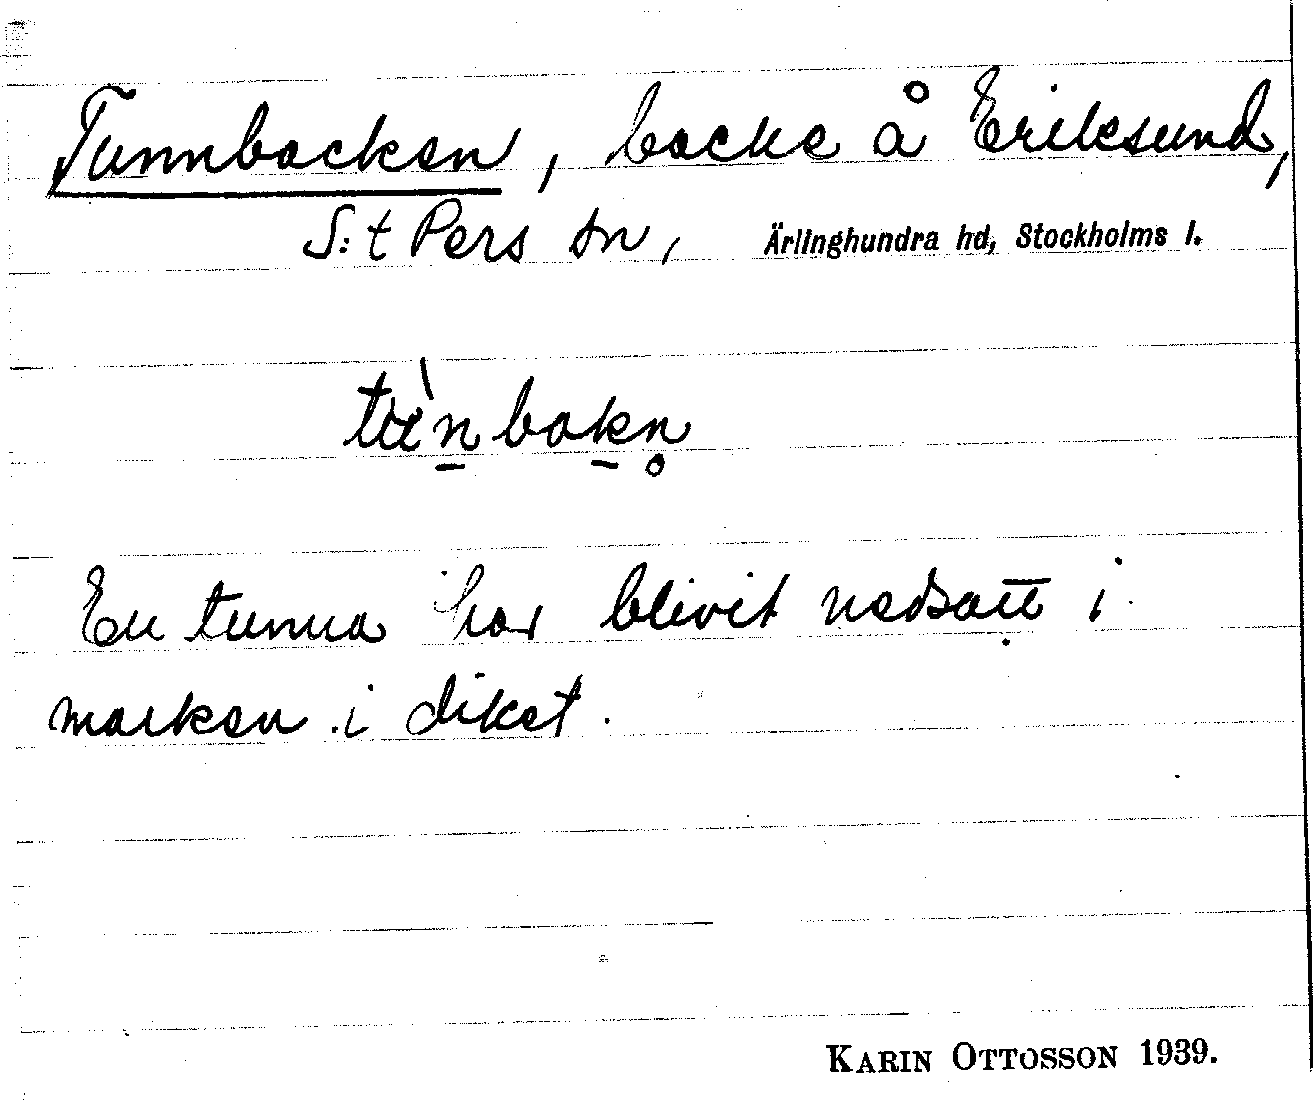 Tunnbacken, backe å Eriksund,
S:t Pers sn, Ärlinghundra hd, Stockholms l.
tu̇̀n̠bak̠n̥
En tunna har blivit nedsatt i
marken i diket.
KARIN OTTOSSON 1939.